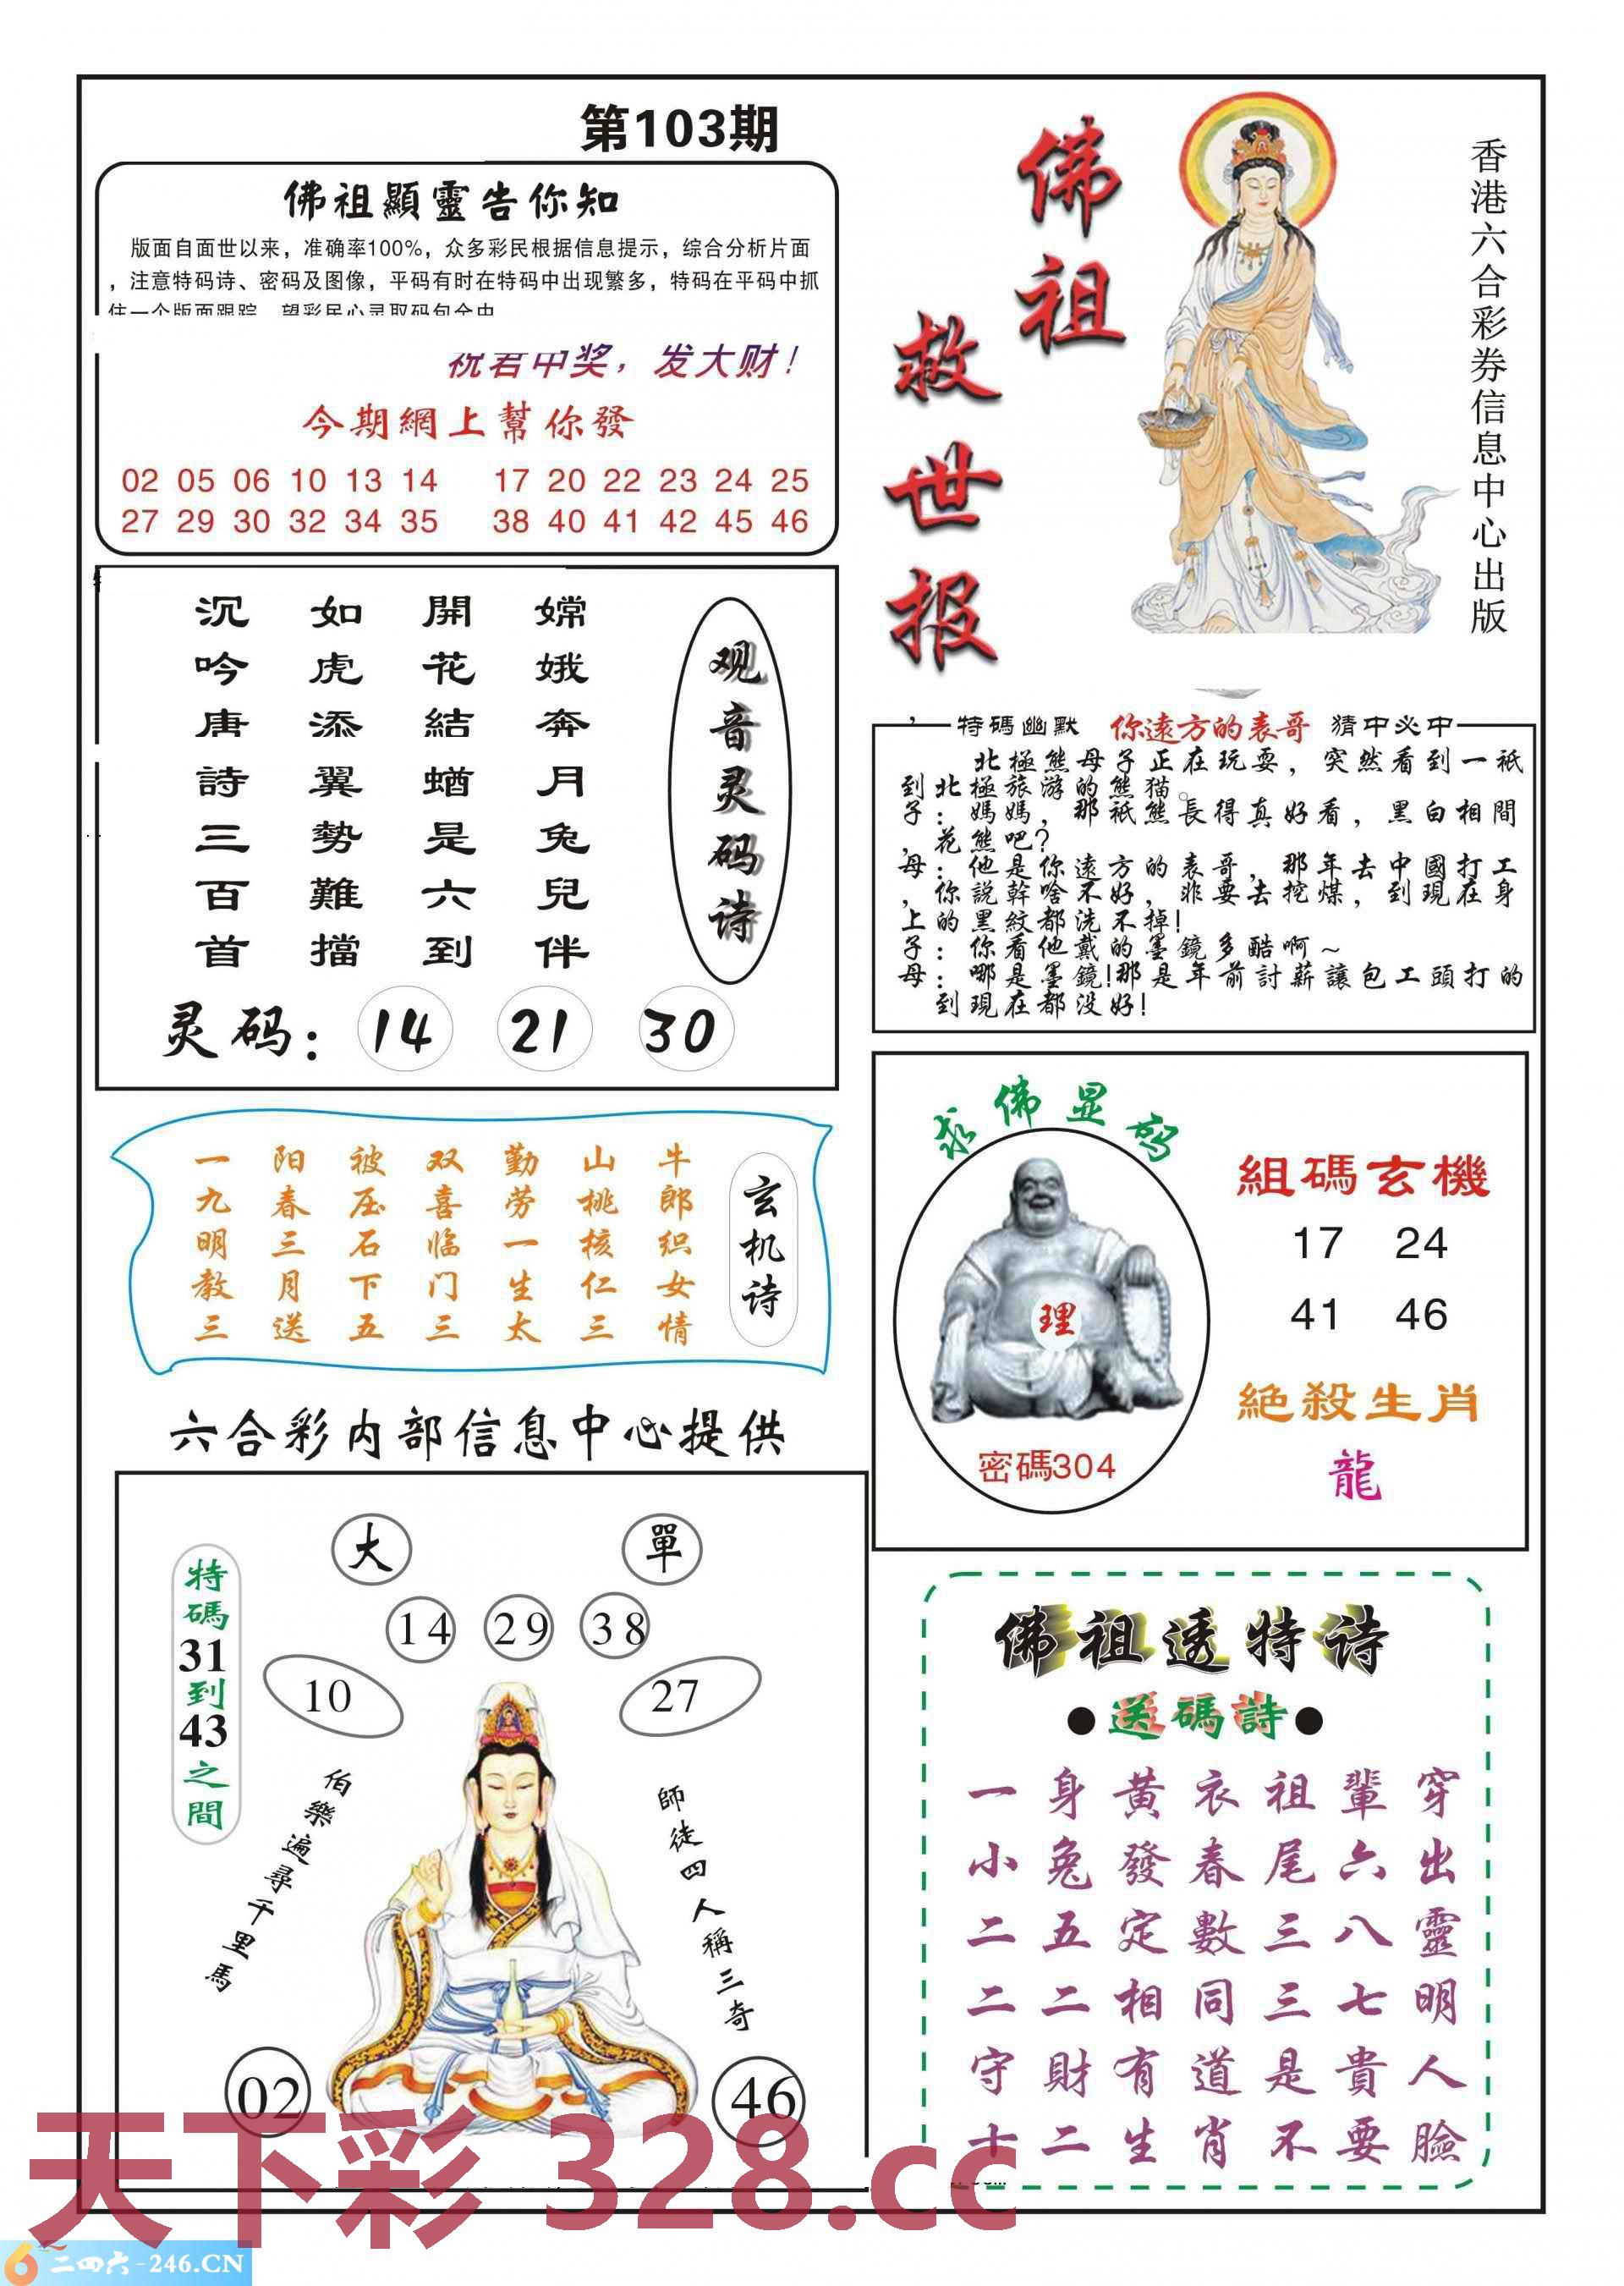 第103期
佛祖顯靈告你知
版面自面世以来，准确率100%，众多彩民根据信息提示，综合分析片面
，注意特码诗、密码及图像，平码有时在特码中出现繁多，特码在平码中抓
住一个版面跟踪，望彩民心灵取码包全中
祝君中奖，发大财！
今期網上幫你發
02 05 06 10 13 14 17 20 22 23 24 25
27 29 30 32 34 35 38 40 41 42 45 46
佛祖
救世报
香港六合彩券信息中心出版
观音灵码诗
嫦娥奔月兔兒伴
開花結蝤是六到
如虎添翼勢難擋
沉吟唐詩三百首
灵码：14 21 30
特碼幽默 你遠方的表哥 猜中必中
北極熊母子正在玩耍，突然看到一衹
到北極旅游的熊猫。
子：媽媽，那衹熊長得真好看，黑白相間
，花熊吧？
母：他是你遠方的表哥，那年去中國打工
，你說幹啥不好，非要去挖煤，到現在身
上的黑紋都洗不掉！
子：你看他戴的墨鏡多酷啊~
母：哪是墨鏡！那是年前討薪讓包工頭打的
到現在都没好！
玄机诗
牛郎织女情
山桃核仁三
勤劳一生太
双喜临门三
被压石下五
阳春三月送
一九明教三
求佛显码
理
密碼304
組碼玄機
17 24
41 46
絶殺生肖
龍
六合彩内部信息中心提供
大
單
14 29 38
10
27
特碼31到43之間
伯樂遍尋千里馬
師徒四人稱三奇
02
46
佛祖透特诗
●送碼詩●
一身黄衣祖輩穿
小兔發春尾六出
二五定數三八靈
二二相同三七明
守財有道是貴人
十二生肖不要臉
天下彩 328.cc
6 二四六-246.CN